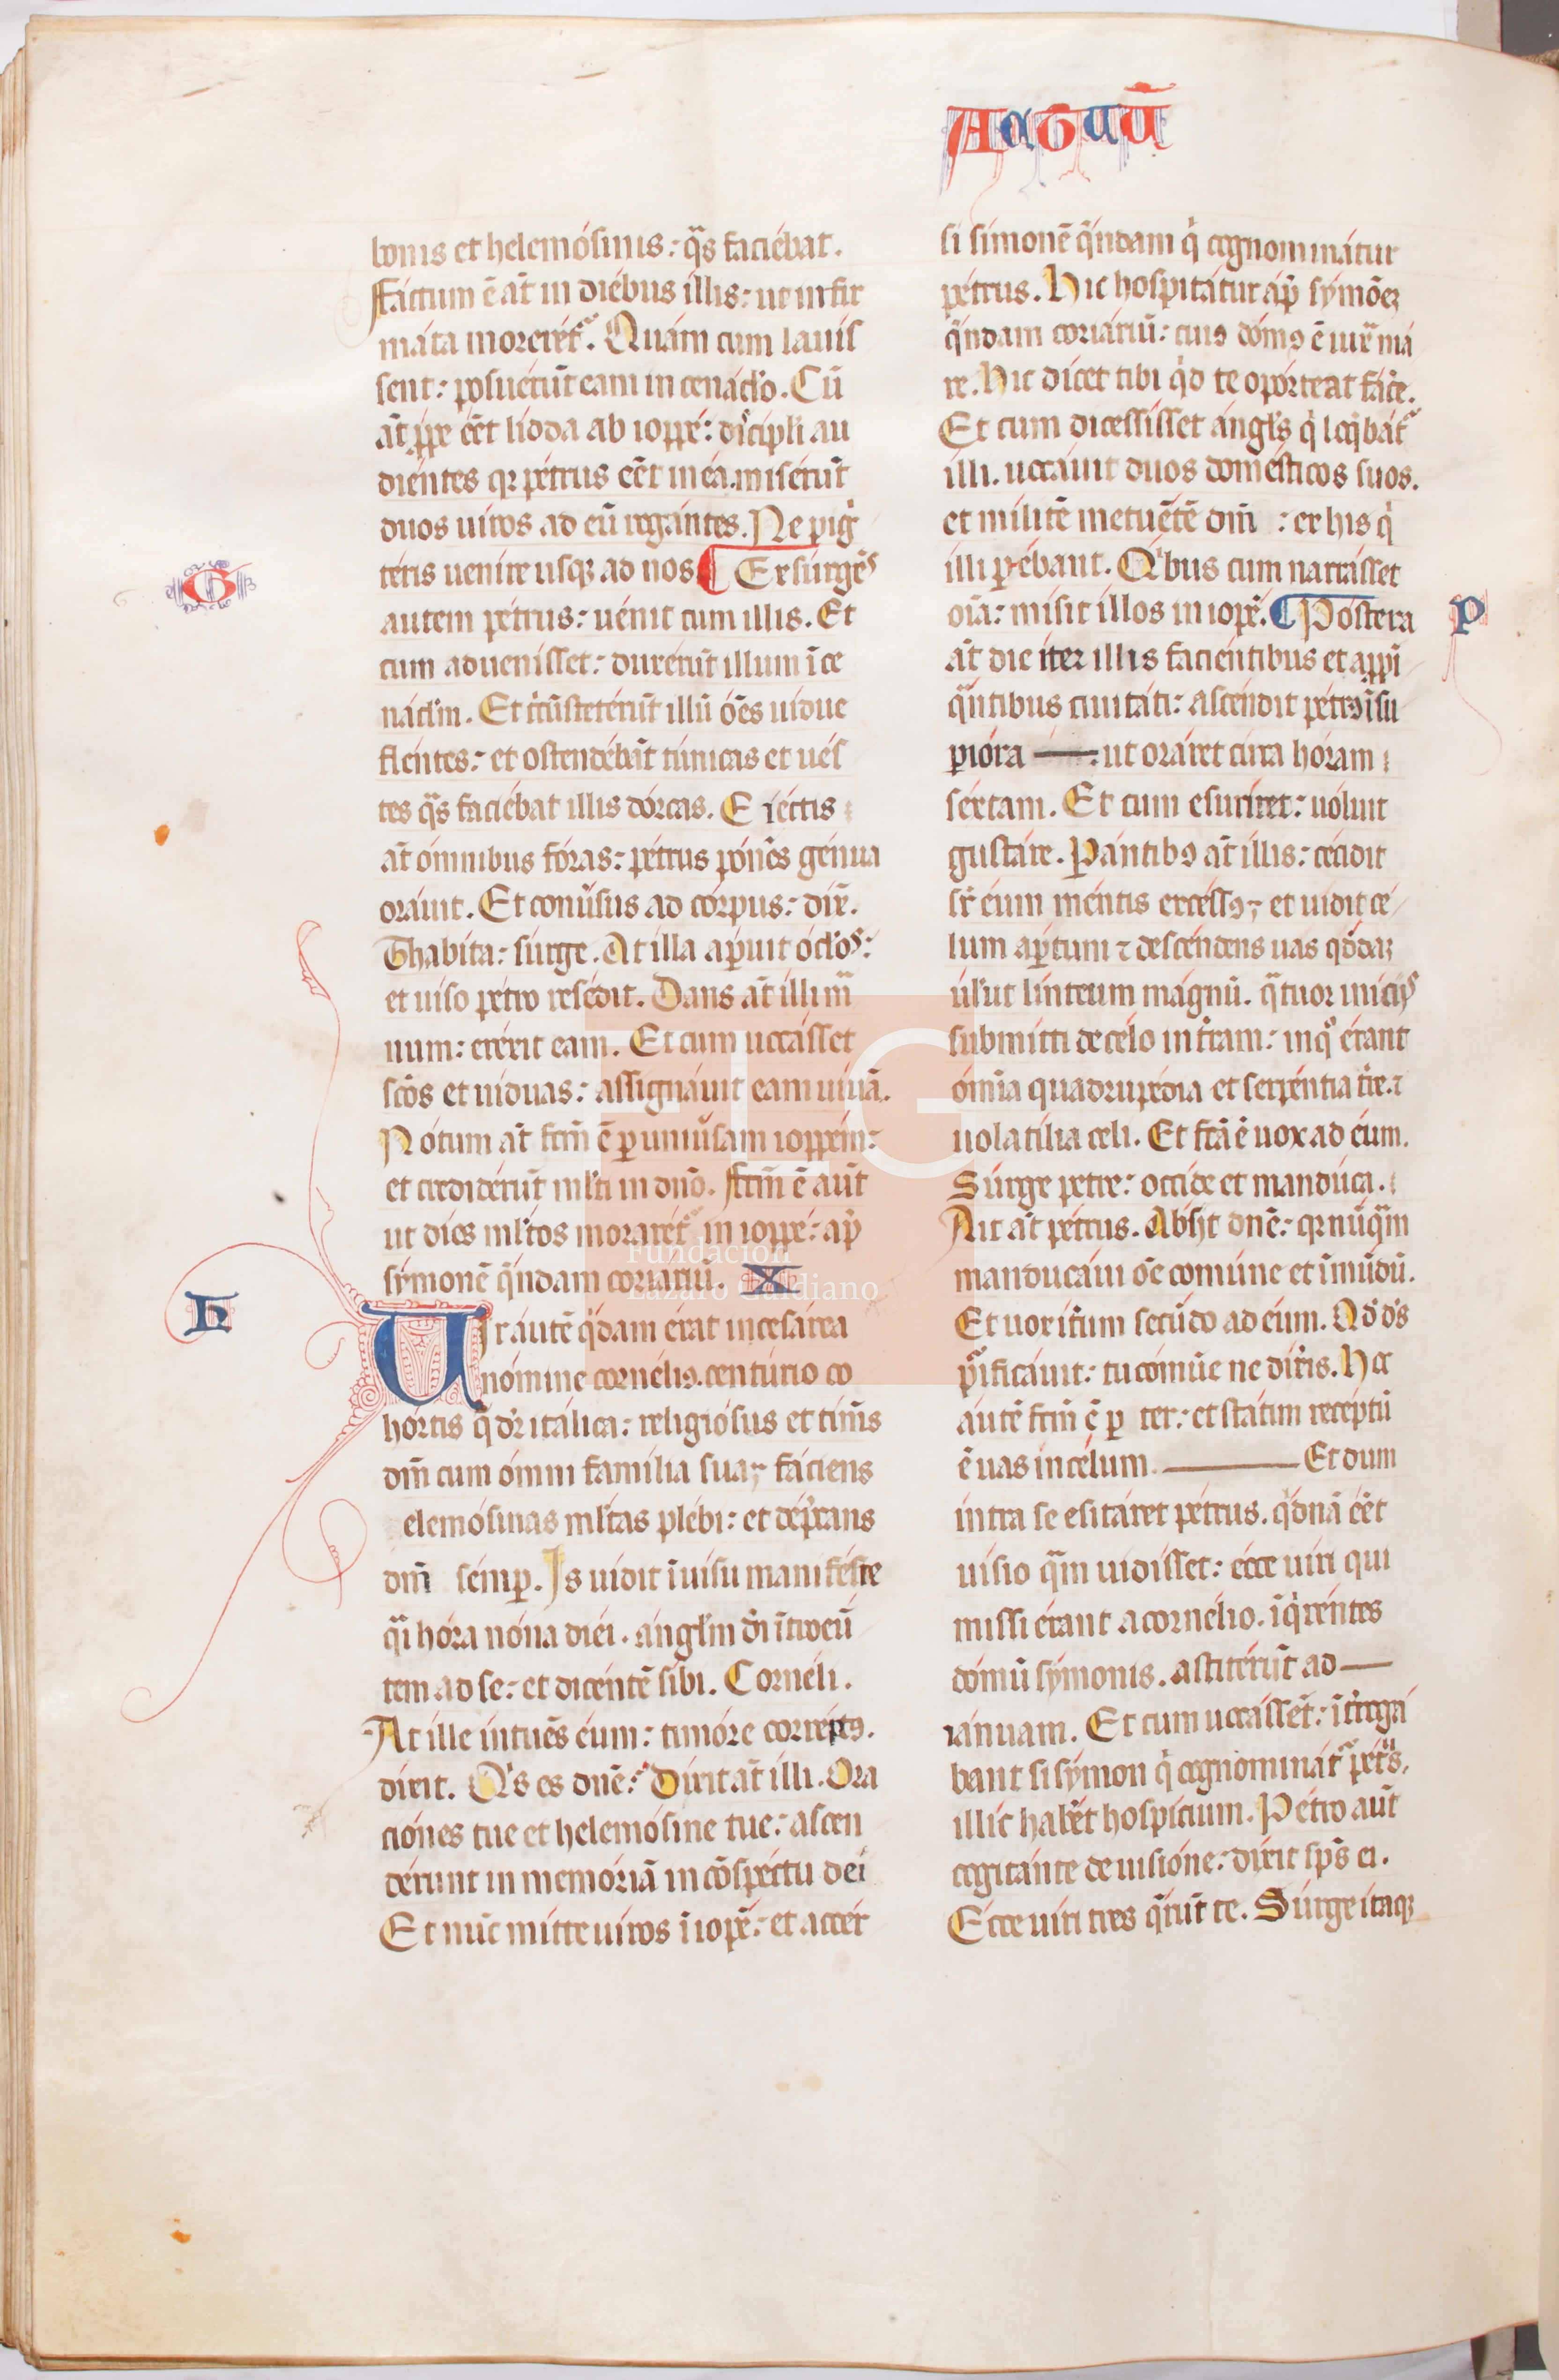 Actuū
bonis et helemósinis: q̄s faciébat.
Fáctum ē āt in diébus illis: ut infir
máta moreret᷑. Quám cum lauís
sent: posuérūt eam in cenac̄lo. Cū
āt ꝓpe ēēt lidda ab ioppé: discipli au
diéntes qꝛ pétrus ēēt in éa. misérūt
duos uiros ad eū rogántes. Ne pigͥ
téris uenire usqꝫ ad nos ¶ Exsúrgēs
autem pétrus: uénit cum illis. Et
cum aduenísset: duxerūt illum ī ce
nác̄lm. Et cͥcūstetérūt illū óēs uídue
flentes: et ostendébāt túnicas et ués
tes q̄s faciébat illis dórcas. Eiéctis
āt ómnibus fóras: pétrus pónēs génua
oráuit. Et conūsus ad córpus: dix̄.
Thabíta: súrge. At illa ap̄uit óclos:
et uiso petro resédit. Dans āt illi m̄
num: eréxit eam. Et cum uocásset
sc̄ōs et uíduas: assignáuit eam uiuā.
Nótum āt fc̄m ē ꝑ uniūsam ioppém:
et credidérūt ml̄ti in dn̄o. Fc̄m ē aūt
ut díes ml̄tos moraret᷑ in ioppé: ap̄
sýmonē q̄ndam coriariū. X
Uir áutē qͥdam érat in cesárea
nómine cornéliꝯ. centúrio co
hórtis q̄ dr̄ itálica: religiósus et tim̄s
dm̄ cum ómni família sua; fáciens
elemósinas ml̄tas plébi: et dep̄cans
dm̄ sémꝑ. Is uidit ī uisu manifeste
q̄i hóra nóna diéi. ángl̄m dī ītroeū
tem ad se: et dicéntē síbi. Cornéli.
At ille intuēs éum: timóre corréptꝯ.
dixit. Qͥs es dn̄e: Dixit āt illi. Ora
ciónes tue et helemósine tue: ascen
dérunt in memóriā in cōspéctu dei
Et nūc mitte uiros ī iopē: et accér
si simonē q̄ndam qͥ cognominátur
pétrus. Hic hospitátur áp̄ sýmōeꝫ
q̄ndam coriáriū: cuiꝯ dómꝯ ē iux̄ má
re. Hic dicet tibi qͥd te opórteat fác̄e.
Et cum dicessísset ángl̄s qͥ loq̄bát᷑
illi. uocáuit duos domésticos suos.
et mílitē metuétē dm̄ : ex his qͥ
illi parébant. Qͥbus cum narrásset
oīā: misit illos in iopē. ¶ Póstera
āt die iter illis faciéntibus et appͥ
q̄ntibus ciuitáti: ascéndit pétrꝯ ī su
ꝑióra : ut oráret circa hóram
séxtam. Et cum esuríret: uóluit
gustáre. Pantibꝯ āt illis: cécidit
sr̄ éum méntis excéssꝯ; et uidit cé
lum aꝑtum ⁊ descéndens uas qōdaꝫ
úl̄ut línteum mágnū. q̄tuor inícijs
submitti de célo in tr̄am: in qͦ érant
ómīa quadrupédia et serpéntia tr̄e. ⁊
uolatília celi. Et fc̄ā ē uox ad éum.
Súrge petre: occíde et mandúca.
Ait āt pétrus. Absit dn̄e: qꝛ nūq̄m
manducáui óē comúne et īmūdū.
Et uox itum secūdo ad éum. Qd̄ ds̄
p᷑ificáuit: tu comūe ne díxis. Hoc
áutē fc̄m ē ꝑ ter: et státim recéptū
ē uas in célum. Et dum
intra se esitáret pétrus. qͥdnā ēēt
uísio q̄m uidísset: écce uiri qui
missi érant a cornélio. īqͥréntes
dómū sýmonis. astitérūt ad
iánuam. Et cum uocássēt: īt̄rogá
bant si sýmon qͥ cognominát᷑ pétrs.
illíc habēt hospícium. Pétro aūt
cogitánte de uisióne: dixit sp̄s ei.
Ecce uiri tres q̄rūt te. Súrge ítaqꝫ
G
H
P
FLG
Fundación
Lázaro Galdiano